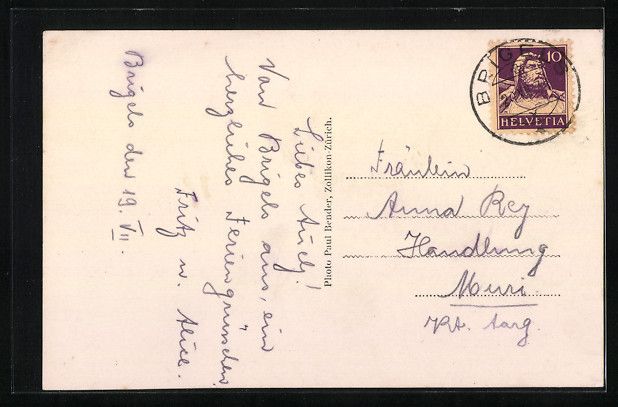 Brigels den 19. VII.
Liebes Anely!
Von Brigels aus, ein
herzliches Feriengrüsschen
Fritz u. Alice.
Photo Paul Bender, Zollikon-Zürich.
BRIGELS
10
HELVETIA
Fräulein
Anna Rey
Handlung
Muri.
Kt. Aarg.